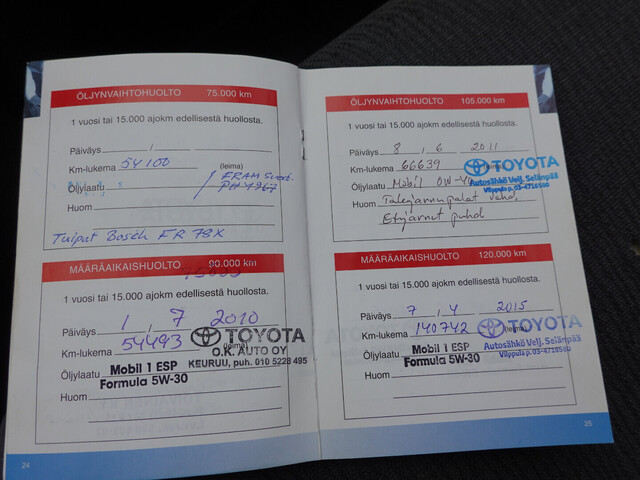 ÖLJYNVAIHTOHUOLTO 75.000 km
1 vuosi tai 15.000 ajokm edellisestä huollosta.
Päiväys / —
Km-lukema 54100 (leima)
Öljylaatu FRAM
Huom
Tulpat Bosch FR 78X
MÄÄRÄAIKAISHUOLTO 90.000 km
1 vuosi tai 15.000 ajokm edellisestä huollosta.
Päiväys 1 , 7 2010
Km-lukema 54493 (leima) TOYOTA
O.K. AUTO OY
KEURUU, puh. 010 5228 495
Öljylaatu Mobil 1 ESP
Formula 5W-30
Huom
24
ÖLJYNVAIHTOHUOLTO 105.000 km
1 vuosi tai 15.000 ajokm edellisestä huollosta.
Päiväys 8 , 6 2011
Km-lukema 66639 (leima) TOYOTA
Öljylaatu Mobil 0W-40 Autosähkö Velj. Selänpää
Vilppula p. 03-4716560
Huom Takajarrupalat vaihd.
Etujarrut puhd
MÄÄRÄAIKAISHUOLTO 120.000 km
1 vuosi tai 15.000 ajokm edellisestä huollosta.
Päiväys 7 , 4 2015
Km-lukema 140742 (leima) TOYOTA
Öljylaatu Mobil 1 ESP Autosähkö Velj. Selänpää
Formula 5W-30 Vilppula p. 03-4716560
Huom
25